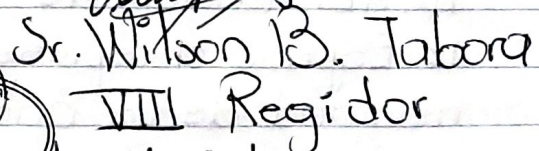 Sr. Wilson B. Tabora
VIII Regidor